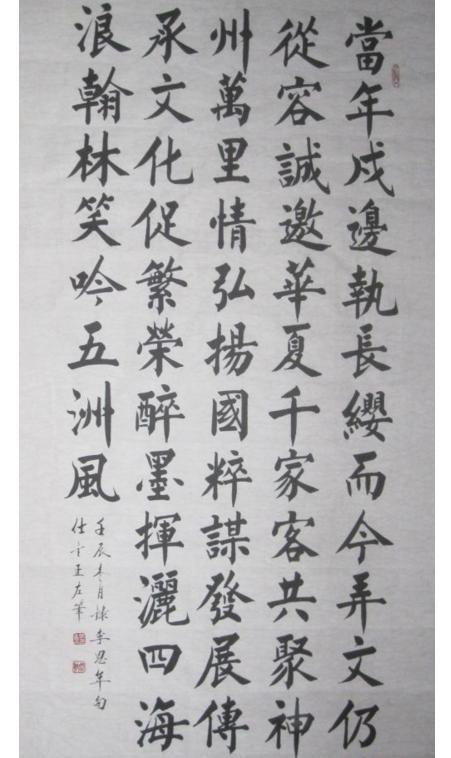 當年戍邊執長纓而今弄文仍
從容誠邀華夏千家客共聚神
州萬里情弘揚國粹謀發展傳
承文化促繁榮醉墨揮灑四海
浪翰林笑吟五洲風
壬辰冬月錄李思年句
王左筆